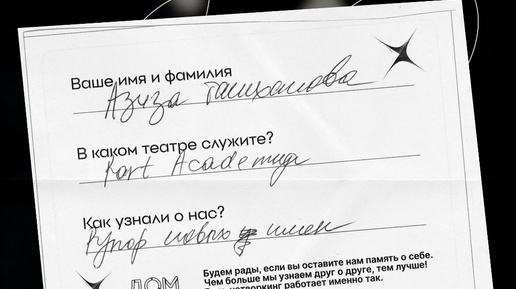 Ваше имя и фамилия
Азиза
В каком театре служите?
Kort Academya
Как узнали о нас?
Купор новых имен
ДОМ
Будем рады, если вы оставите нам память о себе.
Чем больше мы узнаем друг о друге, тем лучше!
нетворкинг работает именно так.